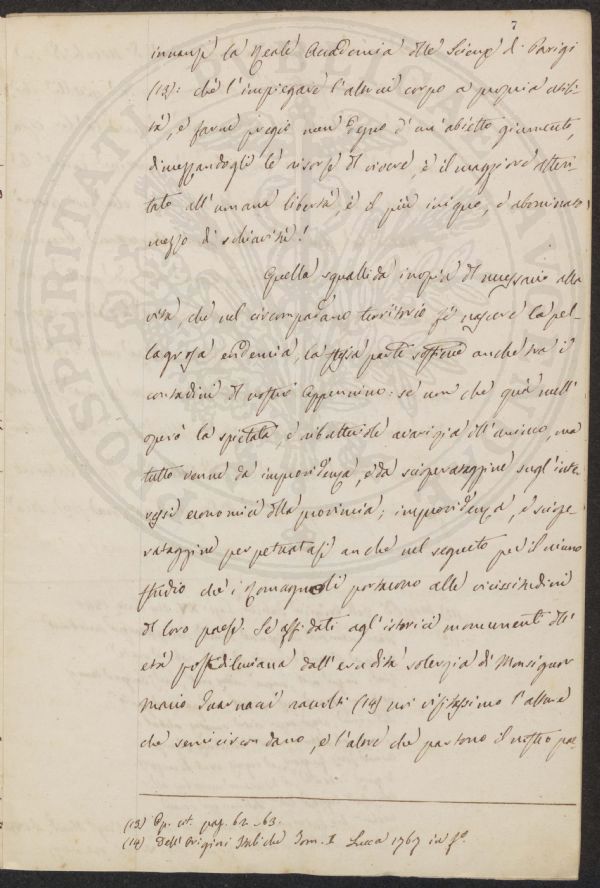 7
innanzi la Reale Accademia delle Scienze di Parigi
(13): che l'impiegare l'altrui corpo a propria utili-
tà, e farne pregio non degno d'un'abietto giumento,
dimezzandogli le risorse del vivere, è il maggiore atten-
tato all'umana libertà, è il più iniquo, e abominato
mezzo di schiavitù!
Quella squallida inopia del necessario alla
vita, che nel circumpadano territorio fè nascere la pel-
lagrosa endemia, la stessa parte sostiene anche tra i
contadini del nostro Appennino: se non che quà null'
operò la spietata, e ributtevole avarizia dell'uomo, ma
tutto venne da imprevidenza, e da scioperataggine sugl'inte-
ressi economici della provincia; imprevidenza, e sciope-
rataggine perpetuatasi anche nel seguito per il niuno
studio che i Romagnoli portarono alle vicissitudini
di loro paese. Se affidati agl'istorici monumenti dell'
età postdiluviana dall'erudita solerzia di Monsignor
Mario Guarnacci raccolti (14) noi visitassimo l'alture
che semicircondano, e l'altre che partono il nostro pae-
(13) Op. cit. pag. 62-63.
(14) Dell'Origini Italiche Tom. I Lucca 1767 in f.º
PROSPERITATI